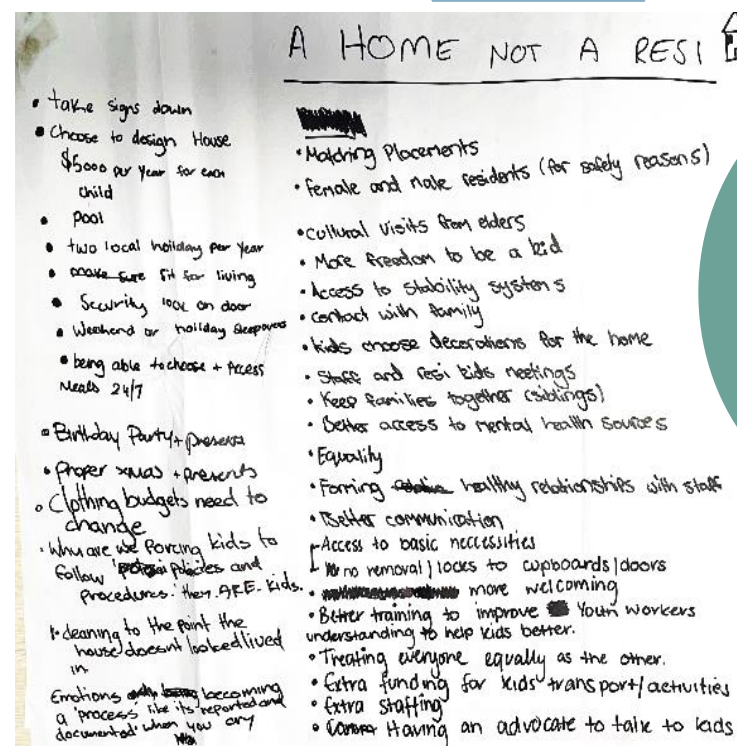 A HOME NOT A RESI
• take signs down
• Choose to design House
$5000 per year for each
child
• pool
• two local hoilday per year
• make sure fit for living
• Security lock on door
• Weekend or hoilday sleepovers
• being able to choose + Access
Meals 24/7
• Birthday Party + presents
• Proper xmas + presents
• Clothing budgets need to
change
• Why are we forcing kids to
follow policies and
procedures. they ARE kids.
• cleaning to the point the
house doesnt looked lived
in
Emotions becoming
a 'process' like its reported and
documented when you cry
• Matching Placements
• female and male residents (for safety reasons)
• cultural visits from elders
• More freedom to be a kid
• Access to stability systems
• contact with family
• kids choose decorations for the home
• Staff and resi kids meetings
• Keep families together (siblings)
• Better access to mental health sources
• Equality
• Forming healthy relationships with staff
• Better communication
Access to basic neccessities
no removal / locks to cupboards / doors
• more welcoming
• Better training to improve Youth Workers
understanding to help kids better.
• Treating everyone equally as the other.
• Extra funding for kids transport/activities
• Extra staffing
• Having an advocate to talk to kids